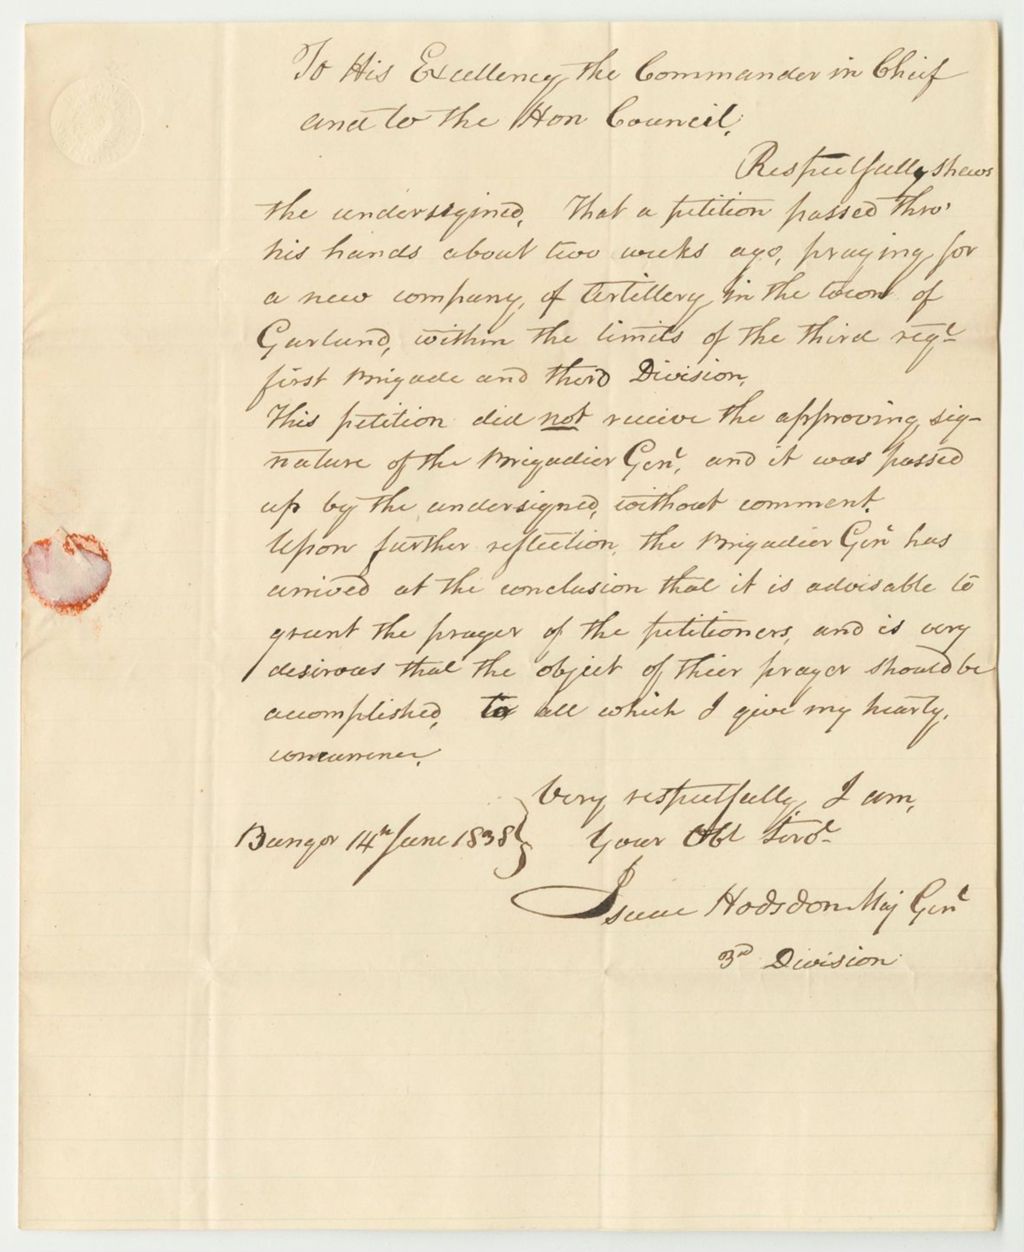 To His Excellency the Commander in Chief
and to the Hon Council.
Respectfully shews
the undersigned, That a petition passed thro'
his hands about two weeks ago, praying for
a new company, of Artillery in the town of
Garland, within the limits of the third regt
first Brigade and third Division.
This petition did not receive the approving sig-
nature of the Brigadier Genl, and it was passed
up by the undersigned, without comment.
Upon further reflection, the Brigadier Genl has
arrived at the conclusion that it is advisable to
grant the prayer of the petitioners, and is very
desirous that the object of thier prayer should be
accomplished, to all which I give my hearty,
concurrence.
Very respectfully, I am,
Bangor 14th June 1838 } Your Obt Servt
Isaac Hodsdon Maj Genl
3rd Division